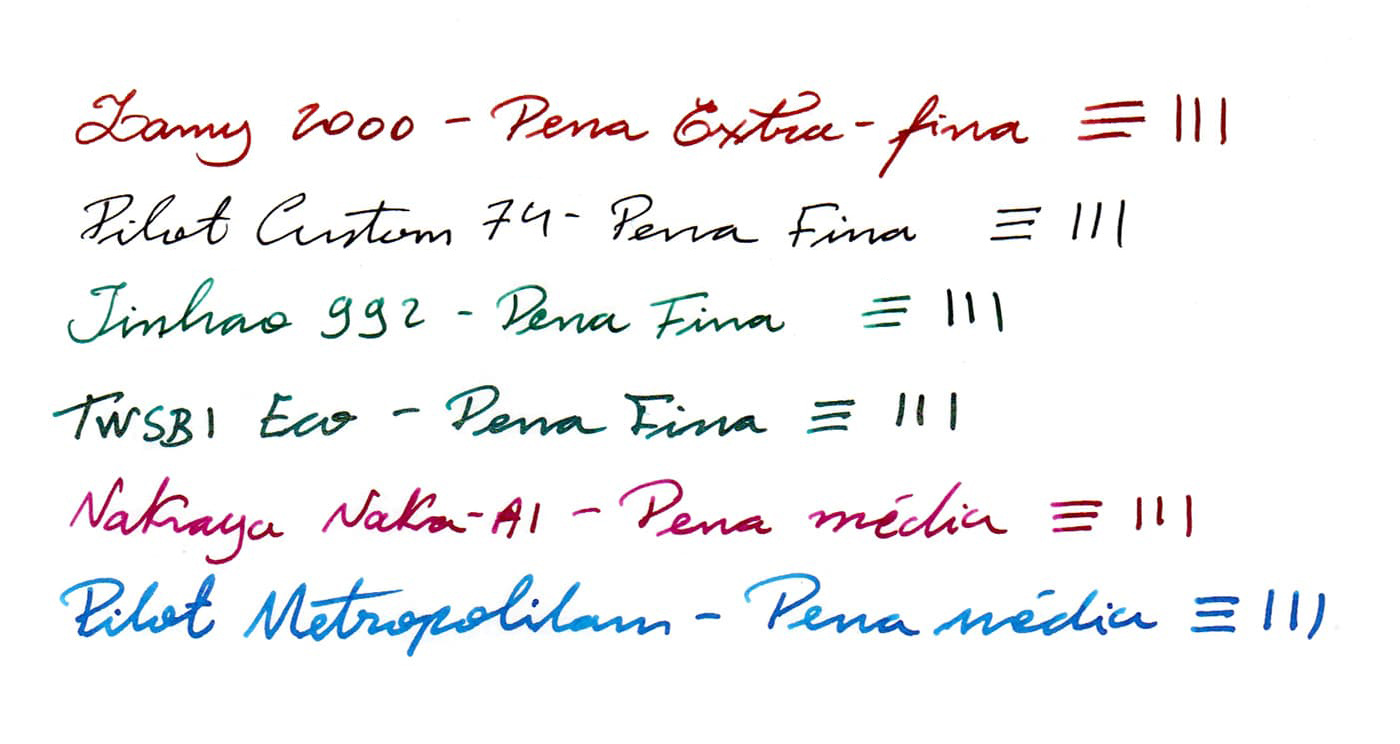 Lamy 2000 - Pena Extra-fina
Pilot Custom 74 - Pena Fina
Jinhao 992 - Pena Fina
TWSBI Eco - Pena Fina
Nakaya Naka-Ai - Pena média
Pilot Metropolitan - Pena média